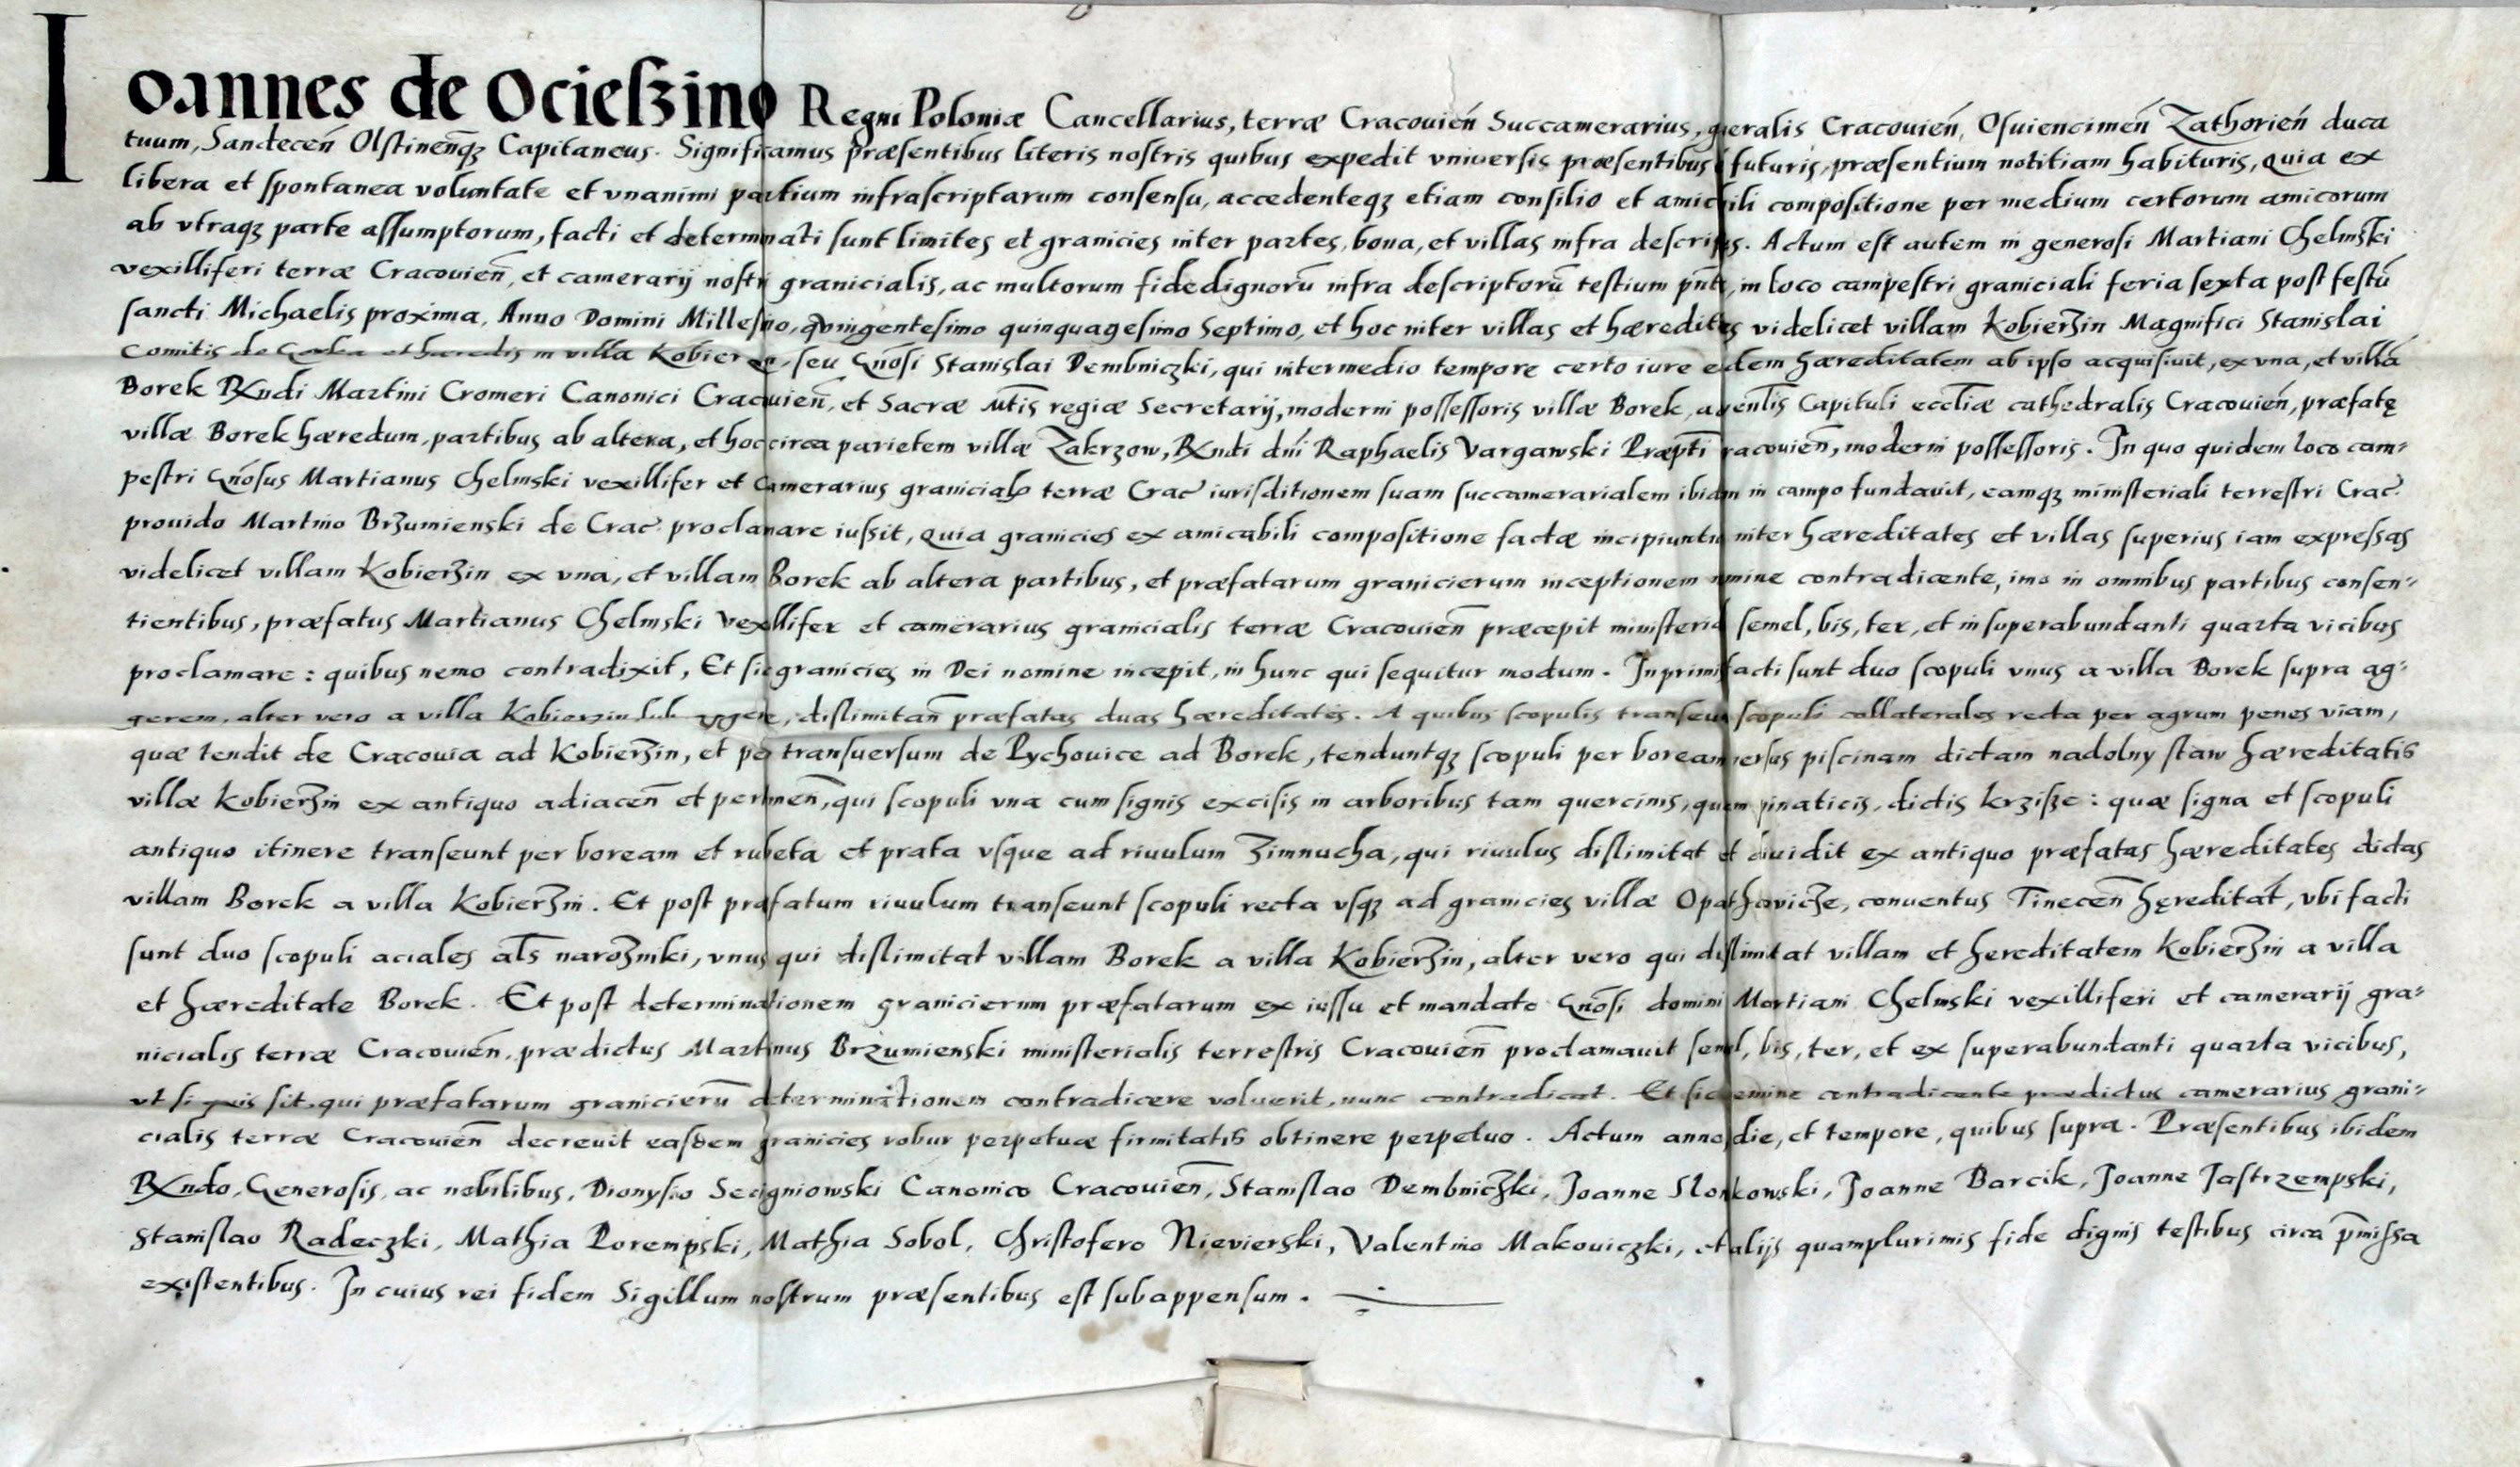 Ioannes de Ocieszino Regni Poloniæ Cancellarius, terræ Cracouień Succamerarius, gñeralis Cracouień, Osuiencimeń Zathorień duca
tuum, Sandeceń Olstineñqz Capitaneus. Significamus præsentibus literis nostris quibus expedit vniuersis præsentibus futuris, præsentium notitiam habituris, quia ex
libera et spontanea voluntate et vnanimi partium infrascriptarum consensu, accedenteqz etiam consilio et amicabili compositione per medium certorum amicorum
ab vtraqz parte assumptorum, facti et determinati sunt limites et granicies inter partes, bona, et villas infra descriptas. Actum est autem in generosi Martiani Chelmski
vexilliferi terræ Cracouieñ, et camerarij nostri granicialis, ac multorum fidedignorū infra descriptorū testium pñtia, in loco campestri graniciali feria sexta post festū
sancti Michaelis proxima, Anno Domini Millesimo, quingentesimo quinquagesimo Septimo, et hoc inter villas et hæreditates videlicet villam Kobierzin Magnifici Stanislai
Comitis de Gorka et hæredis in villa Kobierzin, seu Gñosi Stanislai Dembniczki, qui intermedio tempore certo iure eadem hæreditatem ab ipso acquisiuit, ex vna, et villā
Borek Rndi Martini Cromeri Canonici Cracouieñ, et Sacræ Mtis regiæ Secretarij, moderni possessoris villæ Borek, ac venlis Capituli eccliæ cathedralis Cracouień, præfatę
villæ Borek hæredum, partibus ab altera, et hoc circa parietem villæ Zakrzow, Rndi dni Raphaelis Vargawski Præpti Cracouieñ, moderni possessoris. In quo quidem loco cam-
pestri Gñosus Martianus Chelmski vexillifer et Camerarius granicialis terræ Crac iurisditionem suam succamerarialem ibidem in campo fundauit, eamqz ministeriali terrestri Crac
prouido Martino Brzumienski de Crac proclamare iussit, quia granicies ex amicabili compositione factæ incipiuntur inter hæreditates et villas superius iam expressas
videlicet villam Kobierzin ex vna, et villam Borek ab altera partibus, et præfatarum granicierum inceptionem nemine contradicente, imo in omnibus partibus consen-
tientibus, præfatus Martianus Chelmski Vexillifer et camerarius granicialis terræ Cracouieñ præcepit ministeriali semel, bis, ter, et in superabundanti quarta vicibus
proclamare: quibus nemo contradixit, Et sic granicies in Dei nomine incepit, in hunc qui sequitur modum. Inprimis facti sunt duo scopuli vnus a villa Borek supra ag-
gerem, alter vero a villa Kobierzin sub aggere, dislimitañ præfatas duas hæreditates. A quibus scopulis transeunt scopuli collaterales recta per agrum penes viam,
quæ tendit de Cracouia ad Kobierzin, et per transuersum de Pychouice ad Borek, tenduntqz scopuli per boream versus piscinam dictam nadolny staw hæreditatis
villæ Kobierzin ex antiquo adiaceñ et pertineñ, qui scopuli vna cum signis excisis in arboribus tam quercinis, quam pinaticis, dictis krzisze: quæ signa et scopuli
antiquo itinere transeunt per boream et rubeta et prata vsque ad riuulum Zimnucha, qui riuulus dislimitat et diuidit ex antiquo præfatas hæreditates dictas
villam Borek a villa Kobierzin. Et post præfatum riuulum transeunt scopuli recta vsqz ad granicies villæ Opathowicze, conuentus Tineceñ hęreditat, vbi facti
sunt duo scopuli aciales als narozniki, vnus qui dislimitat villam Borek a villa Kobierzin, alter vero qui dislimitat villam et hereditatem Kobierzin a villa
et hæreditate Borek. Et post determinationem granicierum præfatarum ex iussu et mandato Gñosi domini Martiani Chelmski vexilliferi et camerarij gra-
nicialis terræ Cracouień, prædictus Martinus Brzumienski ministerialis terrestris Cracouieñ proclamauit semel, bis, ter, et ex superabundanti quarta vicibus,
vt si quis sit, qui præfatarum granicierū determinationem contradicere voluerit, nunc contradicat. Et sic nemine contradicente prædictus camerarius grani-
cialis terræ Cracouieñ decreuit easdem granicies robur perpetuæ firmitatis obtinere perpetuo. Actum anno, die, et tempore, quibus supra. Præsentibus ibidem
Rndo, Generosis, ac nobilibus, Dionysio Secigniowski Canonico Cracouieñ, Stanislao Dembniczki, Joanne Slonkowski, Joanne Barcik, Joanne Jastrzempski,
Stanislao Radeczki, Mathia Porempski, Mathia Sobol, Christofero Nievierski, Valentino Makouiczki, et alijs quamplurimis fide dignis testibus circa p̄missa
existentibus. In cuius rei fidem Sigillum nostrum præsentibus est subappensum.